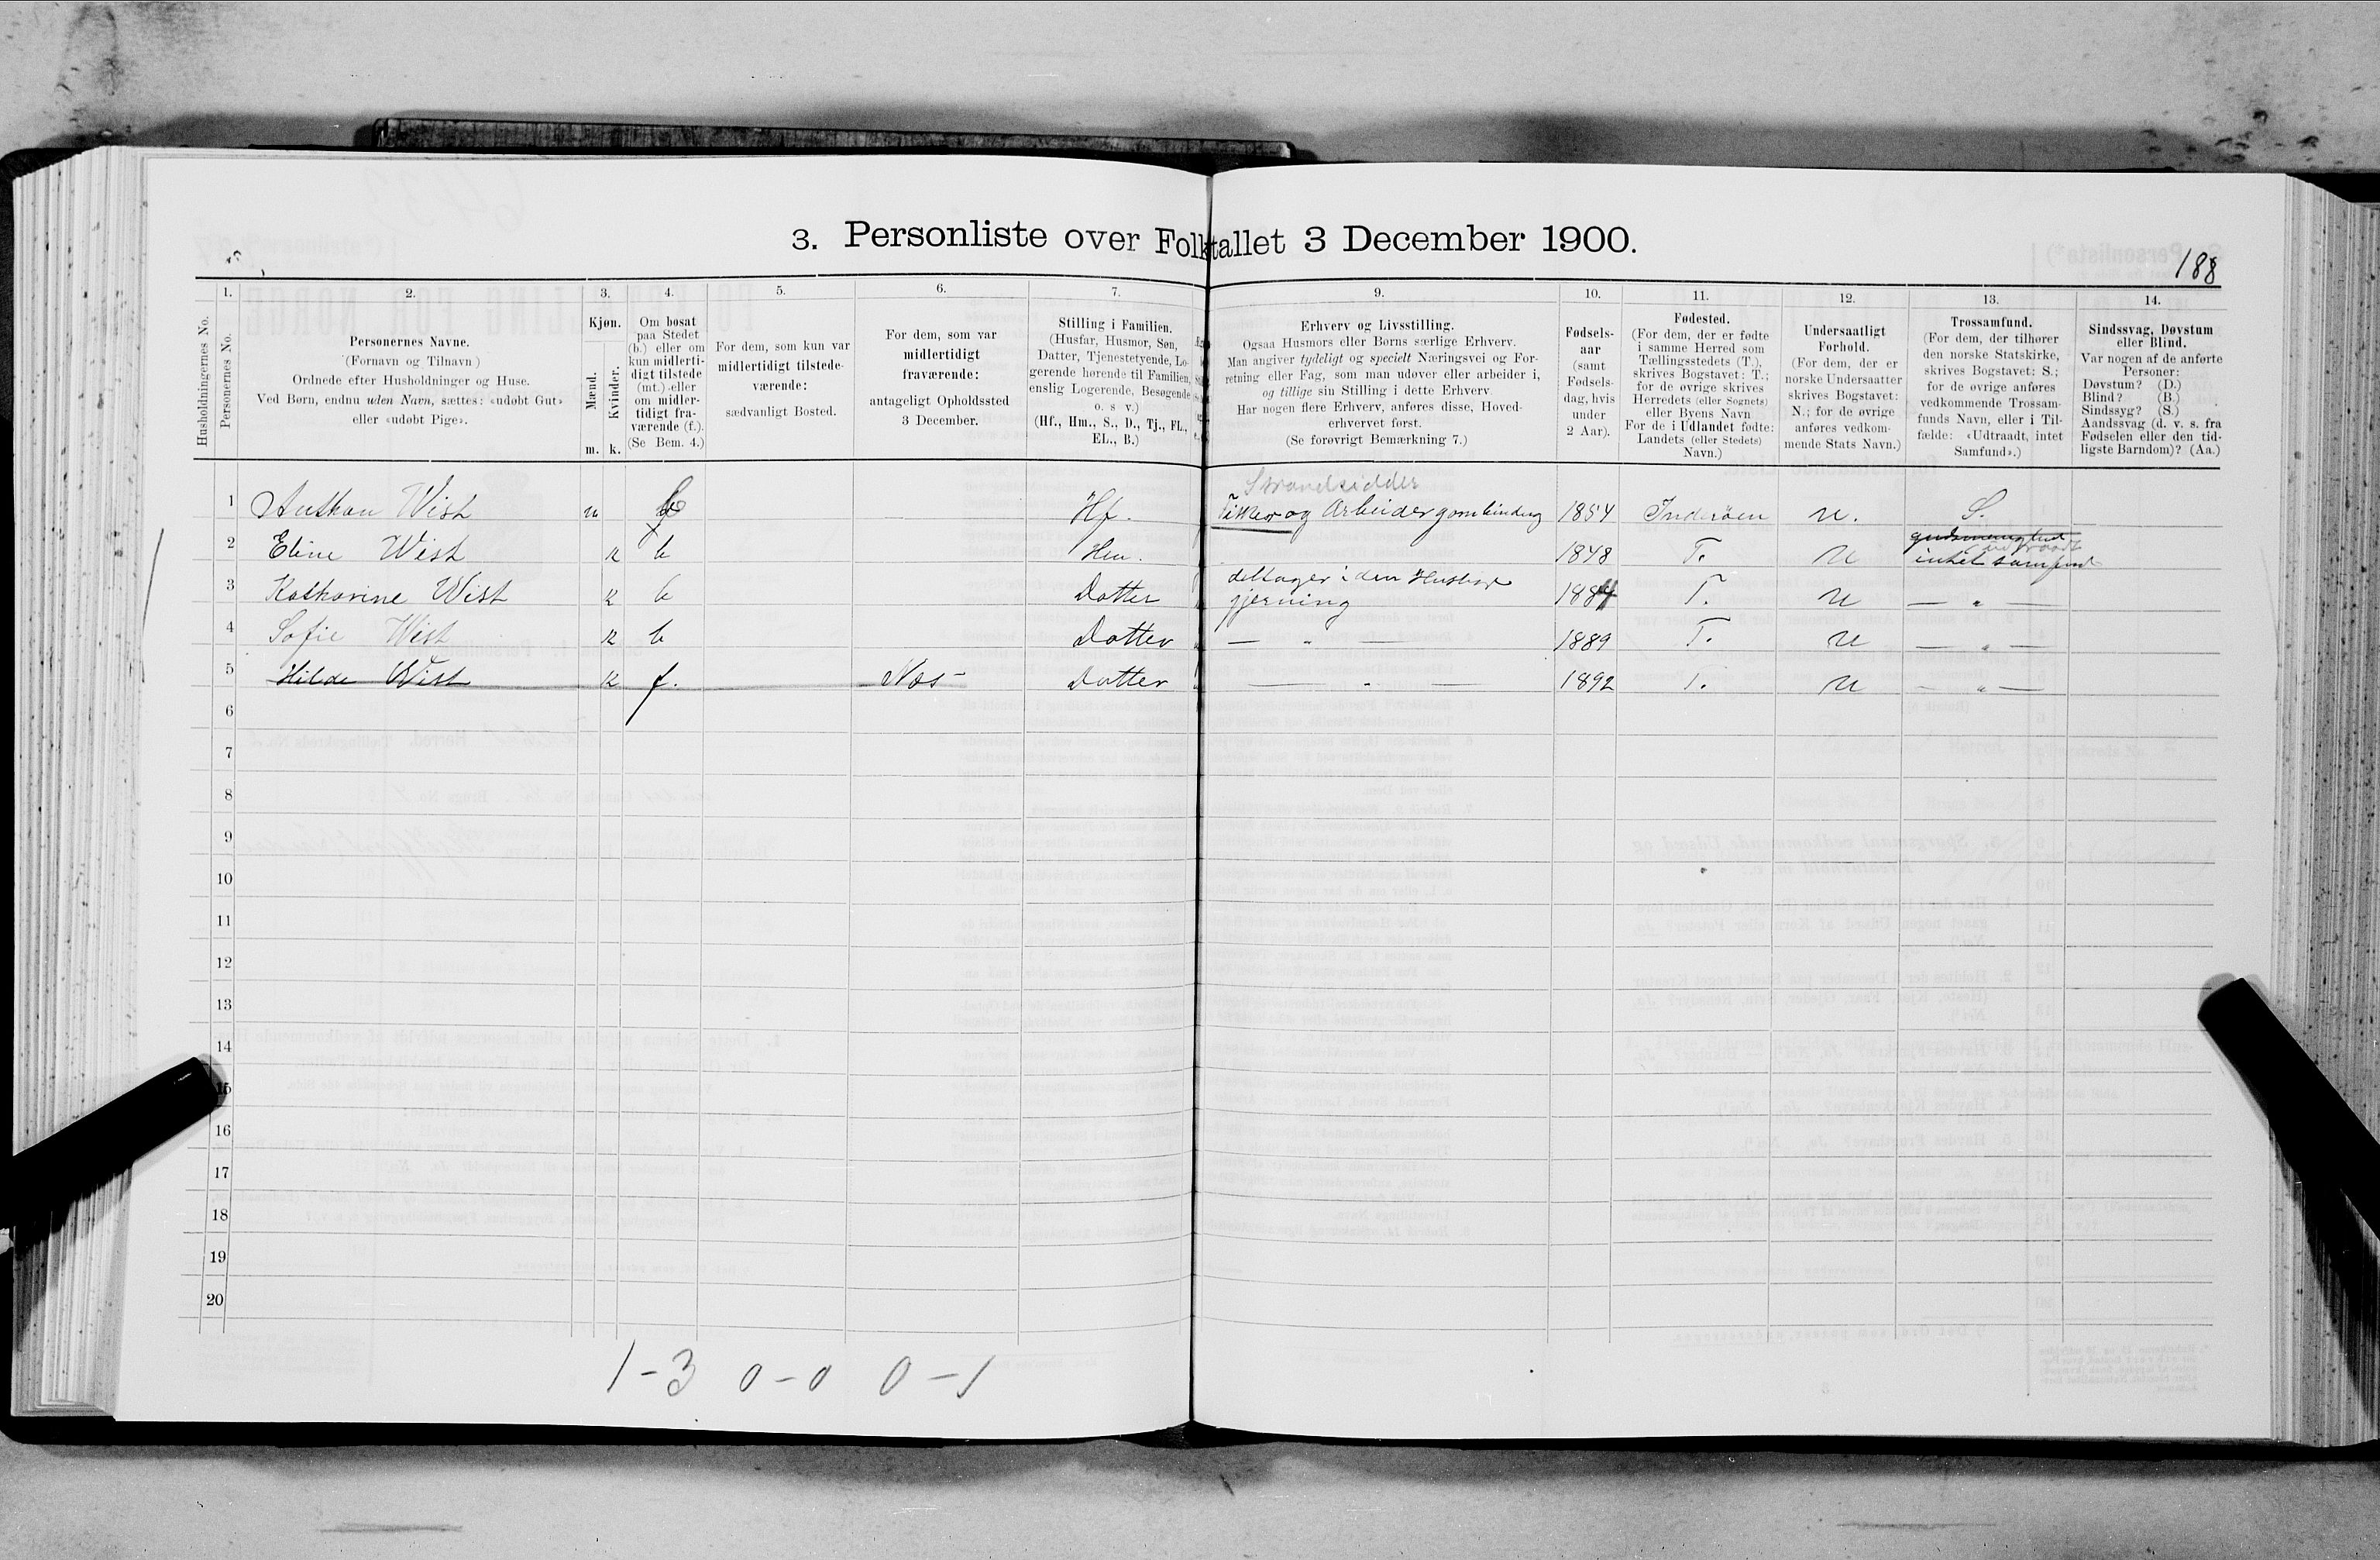 3. Personliste over Folktallet 3 December 1900.
188
1. 2. 3. 4. 5. 6. 7. 9. 10. 11. 12. 13. 14.
Husholdningernes No.
Personernes No.
Personernes Navne.
(Fornavn og Tilnavn)
Ordnede efter Husholdninger og Huse.
Ved Børn, endnu uden Navn, sættes: «udøbt Gut»
eller «udøbt Pige».
Kjøn.
Mænd.
Kvinder.
m. k.
Om bosat
paa Stedet
(b.) eller om
kun midlerti-
digt tilstede
(mt.) eller
om midler-
tidigt fra-
værende (f.).
(Se Bem. 4.)
For dem, som kun var
midlertidigt tilstede-
værende:
sædvanligt Bosted.
For dem, som var
midlertidigt
fraværende:
antageligt Opholdssted
3 December.
Stilling i Familien.
(Husfar, Husmor, Søn,
Datter, Tjenestetyende, Lo-
gerende hørende til Familien,
enslig Logerende, Besøgende
o. s v.)
(Hf., Hm., S., D., Tj., FL.,
EL., B.)
Erhverv og Livsstilling.
Ogsaa Husmors eller Børns særlige Erhverv.
Man angiver tydeligt og specielt Næringsvei og For-
retning eller Fag, som man udøver eller arbeider i,
og tillige sin Stilling i dette Erhverv
Har nogen flere Erhverv, anføres disse, Hoved-
erhvervet først.
(Se forøvrigt Bemærkning 7.)
Fødsels-
aar
(samt
Fødsels-
dag, hvis
under
2 Aar).
Fødested.
(For dem, der er fødte
i samme Herred som
Tællingsstedets (T.),
skrives Bogstavet: T.;
for de øvrige skrives
Herredets (eller Sognets)
eller Byens Navn
For de i Udlandet fødte:
Landets (eller Stedets)
Navn.)
Undersaatligt
Forhold.
(For dem, der er
norske Undersaatter
skrives Bogstavet:
N.; for de øvrige
anføres vedkom-
mende Stats Navn.)
Trossamfund.
(For dem, der tilhører
den norske Statskirke,
skrives Bogstavet: S.;
for de øvrige anføres
vedkommende Trossam-
funds Navn, eller i Til-
fælde: «Udtraadt, intet
Samfund».)
Sindssvag, Døvstum
eller Blind.
Var nogen af de anførte
Personer:
Døvstum? (D.)
Blind? (B.)
Sindssyg? (S.)
Aandssvag (d. v. s. fra
Fødselen eller den tid-
ligste Barndom)? (Aa.)
Strandsidder
1 Anthon Wist m b Hf. Fisker og Arbeider garnbinding 1854 Inderøen N. S.
2 Eline Wist k b Hm. 1848 T. N udtraadt
intet samfund
deltager i den Huslige
3 Katharine Wist k b Datter gjerning 1884 T. N — „ —
4 Sofie Wist k b Datter — „ — 1889 T. N — „ —
5 Hilda Wist k f. Næs Datter — „ — 1892 T. N — „ —
6
7
8
9
10
11
12
13
14
15
16
17
18
19
20
1-3 0-0 0-1